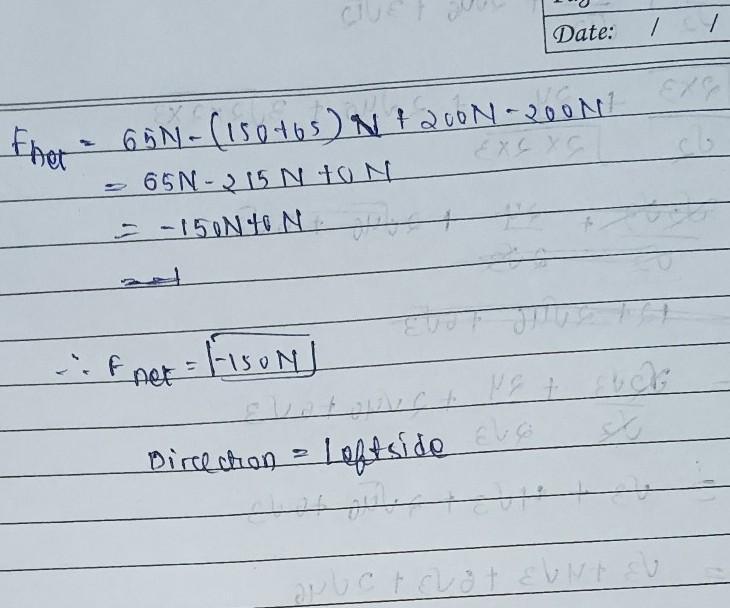 Date: / /
Fnet = 65N - (150+65) N + 200N - 200N
= 65N - 215N + 0N
= -150N+0N
∴ Fnet = -150N
Direction = Leftside